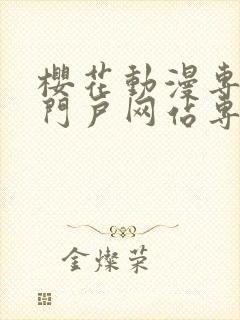 櫻花動漫專
門戶网佔專
金燦荣